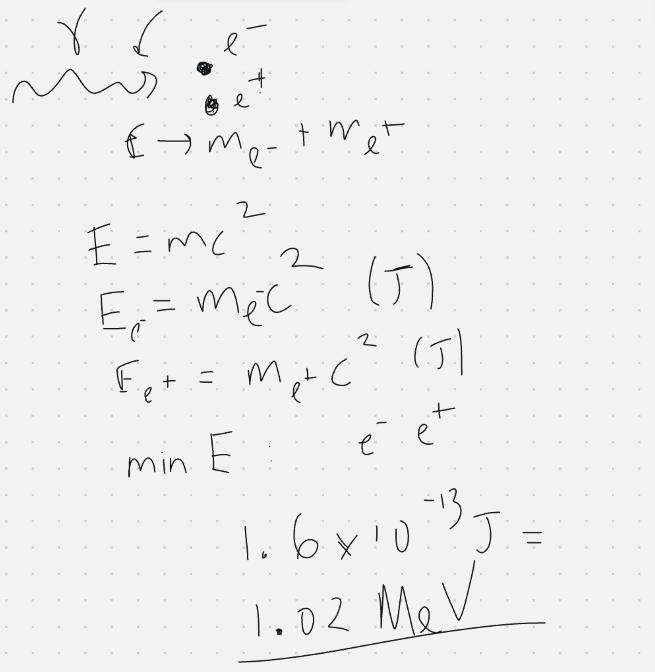 γ
e⁻
e⁺
E → mₑ₋ + mₑ₊
E = mc²
Eₑ₋ = mₑ₋c² (J)
Eₑ₊ = mₑ₊c² (J)
min E : e⁻ e⁺
1.6 × 10⁻¹³ J =
1.02 MeV